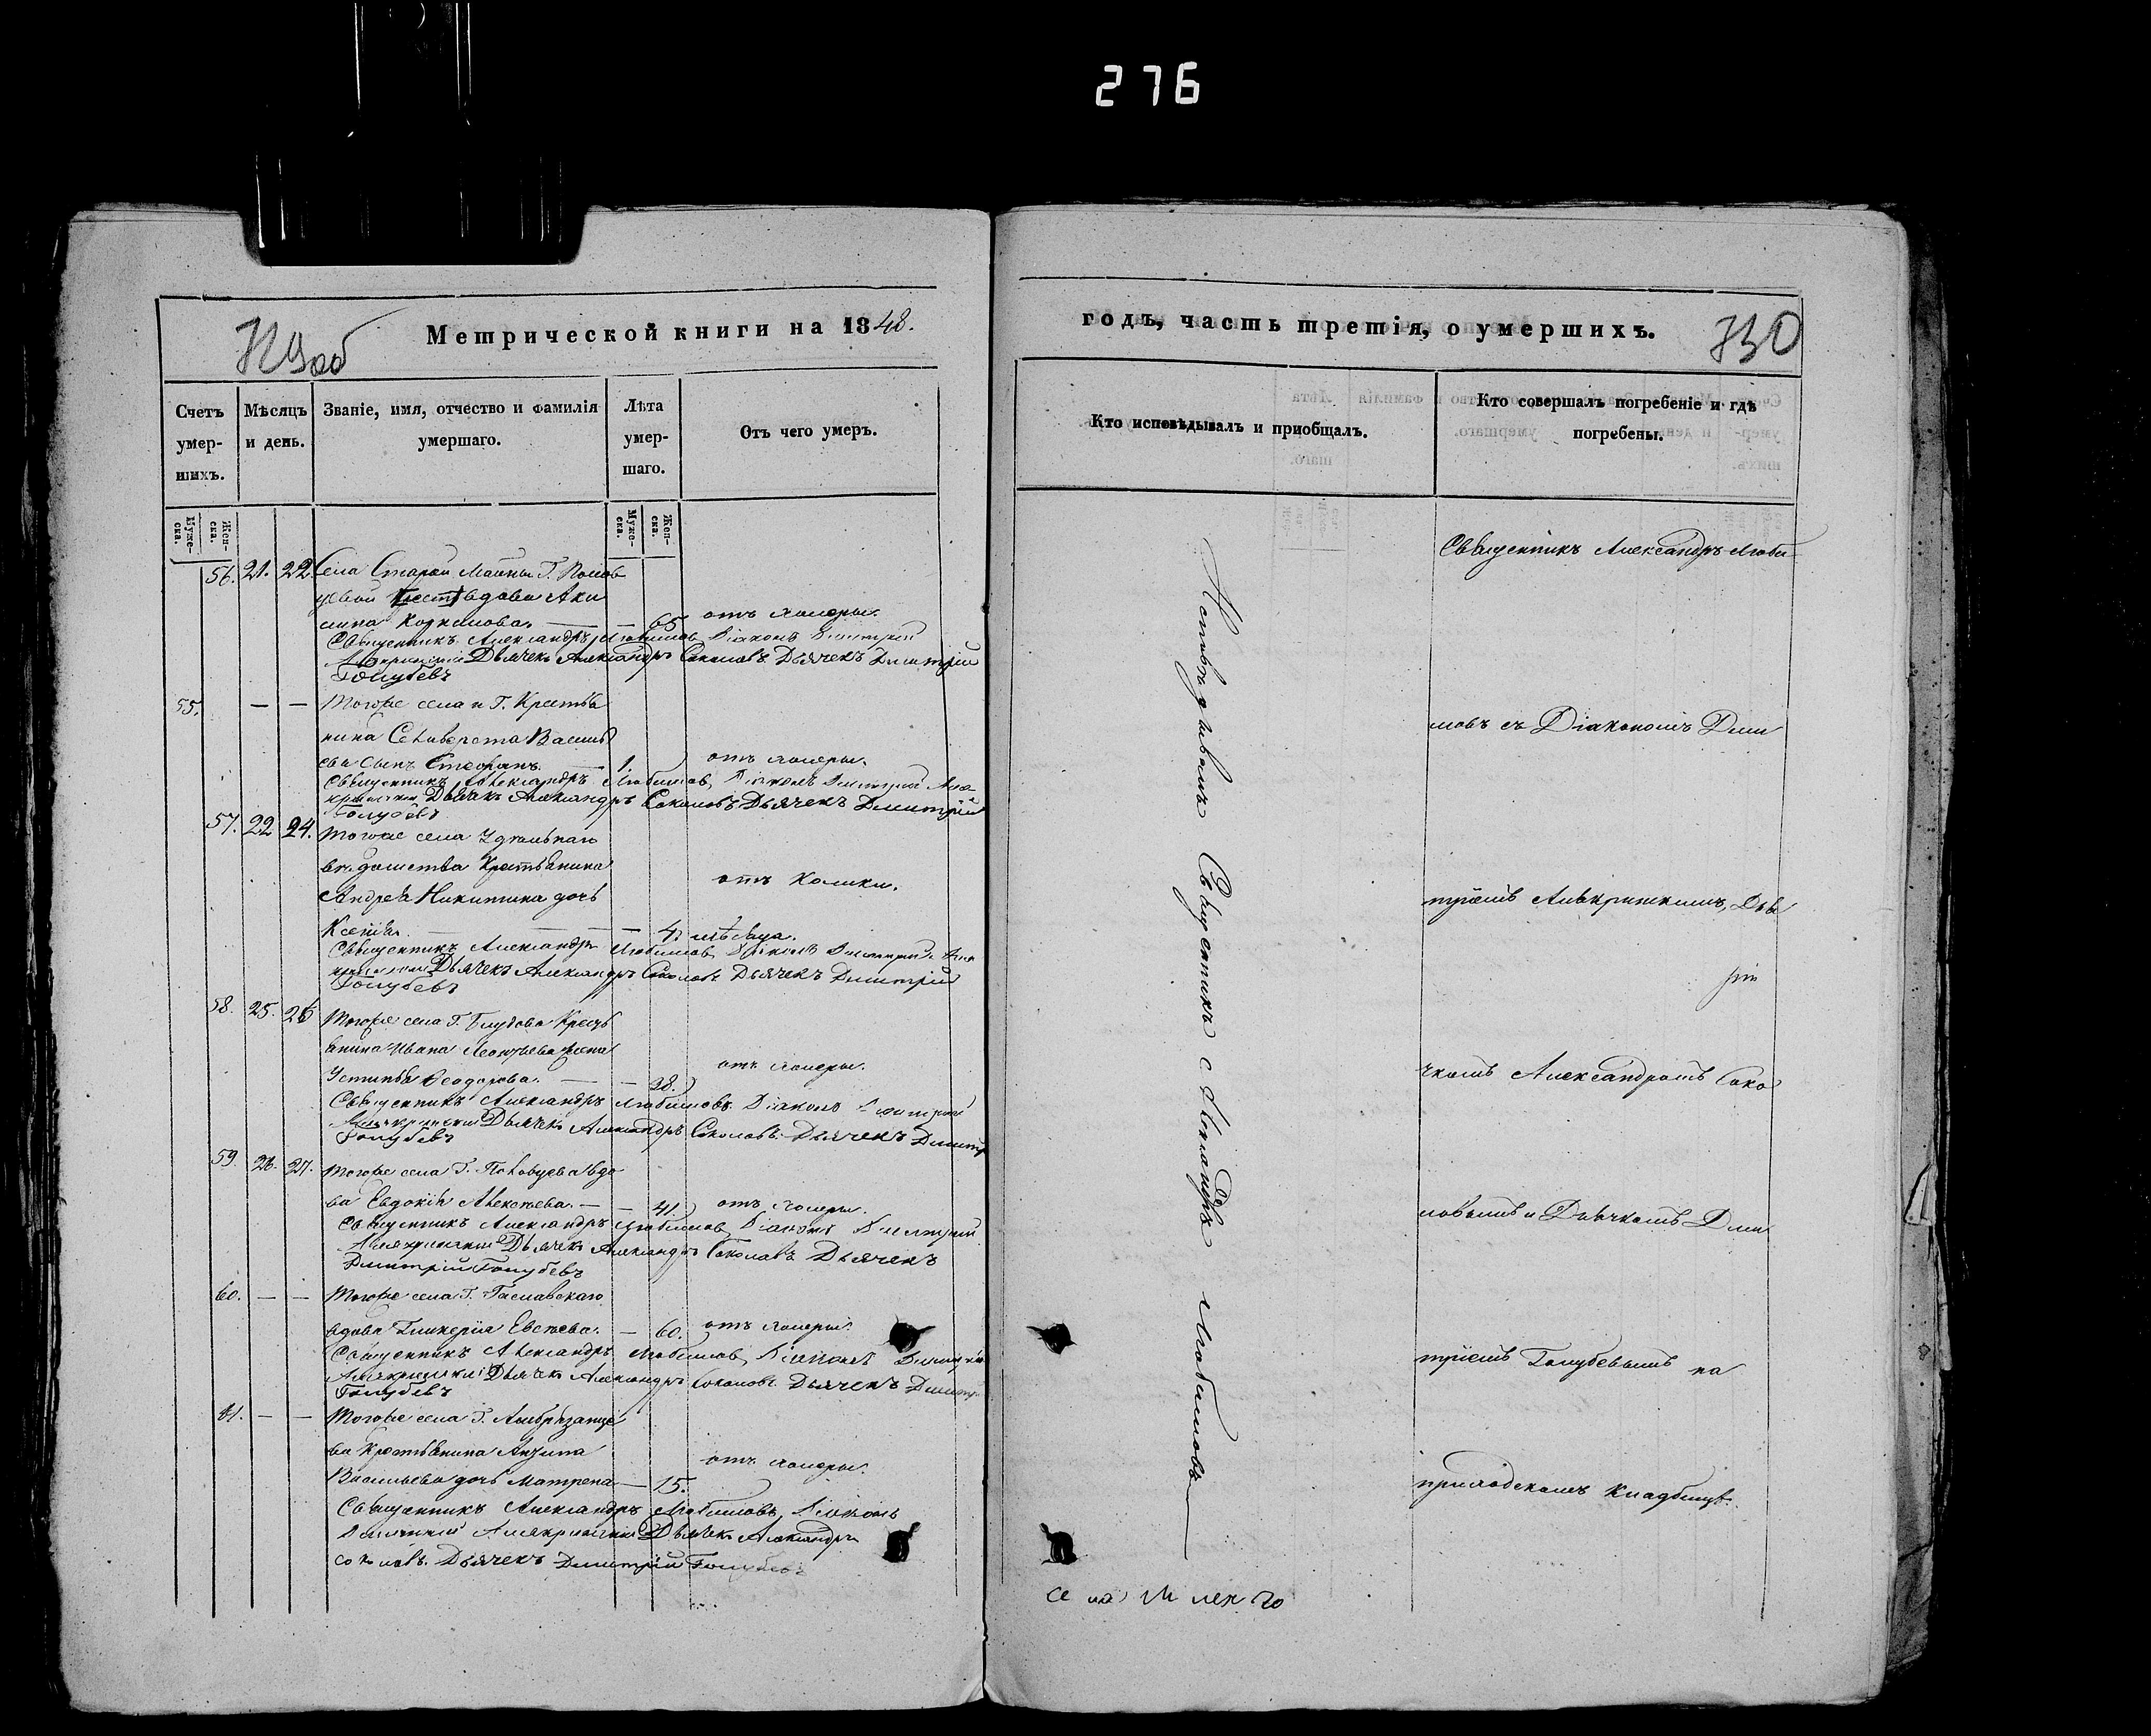 276
Метрической книги на 1848.
729 об
Счетъ умер-шихъ.
Мѣсяцъ и день.
Званіе, имя, отчество и фамилія умершаго.
Лѣта умер-шаго.
Отъ чего умеръ.
Муже-ска.
Жен-ска.
Муже-ска.
Жен-ска.
56. 21. 22. Села Старой Майны Г.
вдова Аку
лина — — 65 отъ холеры.
Священникъ Александръ Любимовъ Діаконъ Димитрій
Дьячекъ Александръ Соколовъ Дьячекъ Димитрій
Голубевъ
55. — — Тогоже села и Г. Крестья
нина Селиверста Василь
ева сынъ Стефанъ. — 1. отъ холеры.
Священникъ Александръ Любимовъ, Діаконъ Димитрій
Дьячекъ Александръ Соколовъ Дьячекъ Димитрій
Голубевъ
57. 22 24. Тогоже села Удѣльнаго
вѣдомства Крестьянина
Андрея Никитина дочь отъ Колики.
Ксенія. — — — 4. мѣсяца.
Священникъ Александръ Любимовъ Діаконъ Димитрій
Дьячекъ Александръ Соколовъ Дьячекъ Димитрій
Голубевъ
58. 25. 26 Тогоже села Г. Блудова Кресть
янина Ивана Леонтьева жена
Устинья Ѳеодорова. — — 28. отъ холеры.
Священникъ Александръ Любимовъ Діаконъ Димитрій
Дьячекъ Александръ Соколовъ Дьячекъ Димитр
Голубевъ
59. 26. 27. Тогоже села Г. вдо
ва Евдокія Алексѣева. — — 41. отъ холеры.
Священникъ Александръ Любимовъ Діаконъ Димитрій
Дьячекъ Александръ Соколовъ Дьячекъ
Димитрій Голубевъ
60. — — Тогоже села Г.
вдова Гликерія Евсѣева. — 60. отъ холеры.
Священникъ Александръ Любимовъ Діаконъ Димитрій
Дьячекъ Александръ Соколовъ Дьячекъ Димитр
Голубевъ
61. — — Тогоже села Г. Амбразанце
ва Крестьянина
Васильева дочь Матрена — 15. отъ холеры.
Священникъ Александръ Любимовъ, Діаконъ
Димитрій Дьячекъ Александръ
Соколовъ. Дьячекъ Димитрій Голубевъ
годъ, часть третія, о умершихъ.
730
Кто исповѣдывалъ и приобщалъ.
Кто совершалъ погребеніе и гдѣ погребены.
Исповѣдывалъ Священникъ Александръ Любимовъ
Священникъ Александръ Люби
мовъ съ Діакономъ Дми
тріемъ Дья
чкомъ Александромъ Соко
ловымъ и Дьячкомъ Дми
тріемъ Голубевымъ на
приходскомъ кладбищѣ.